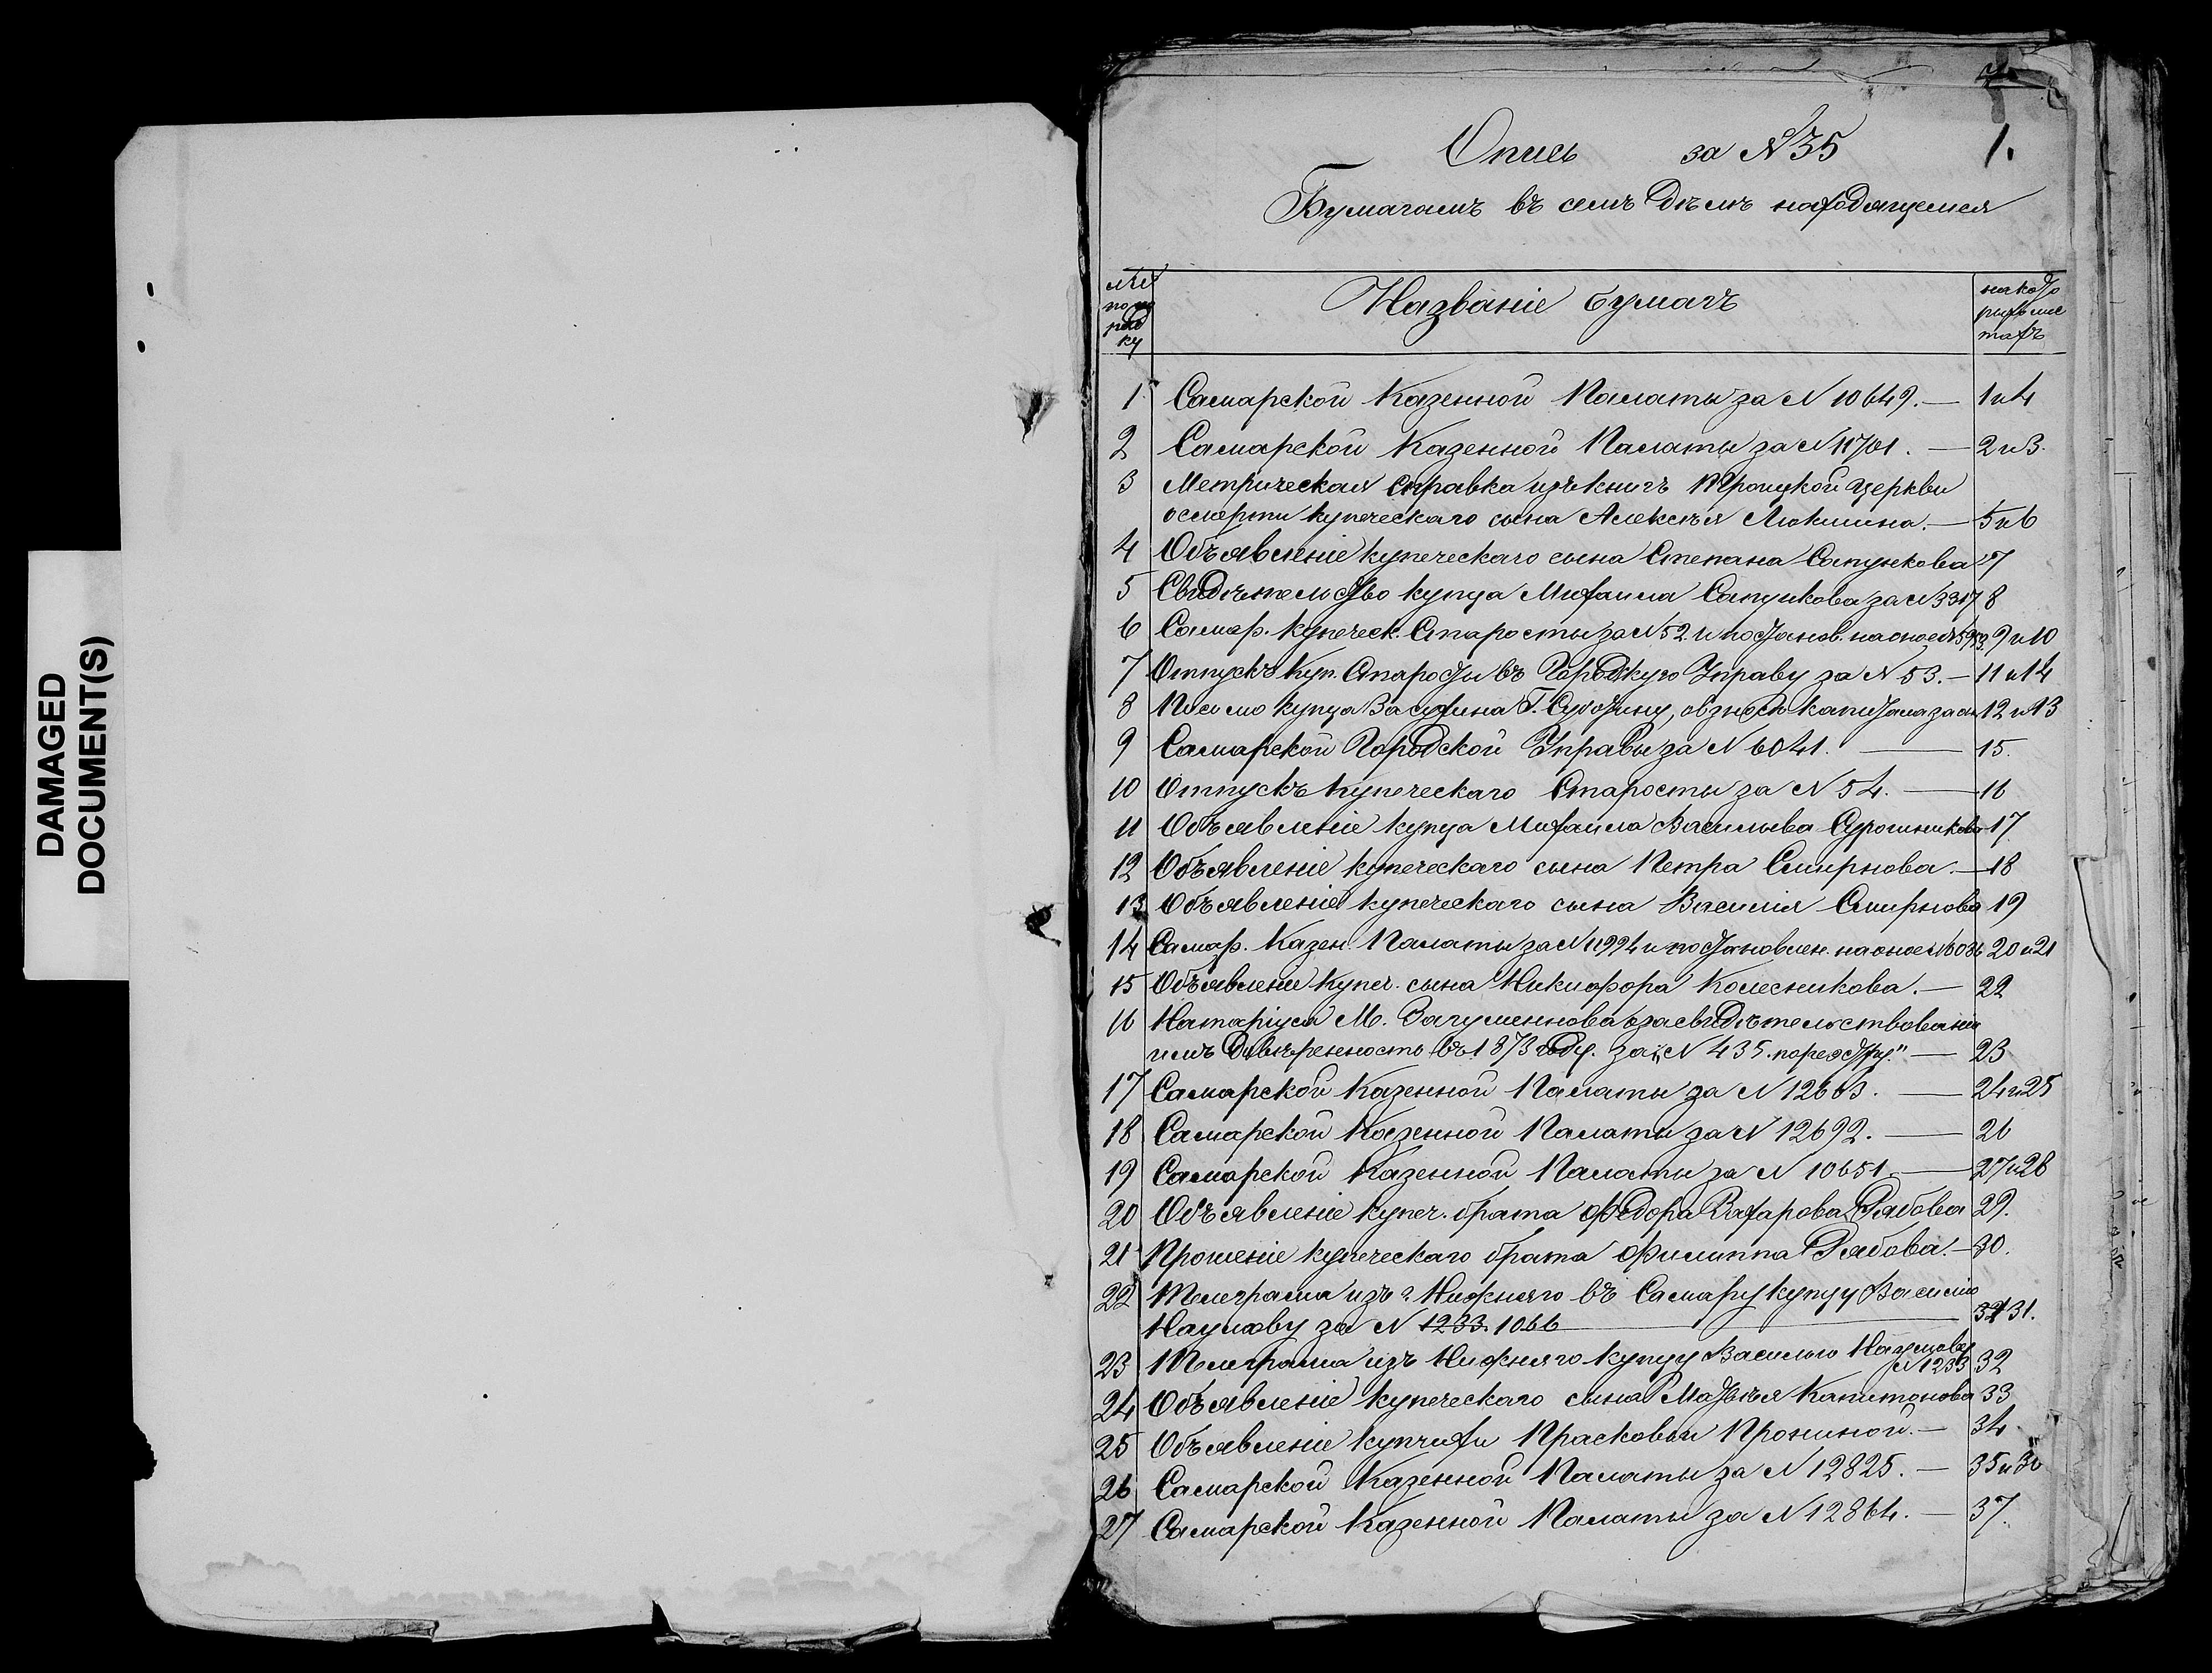 DAMAGED
DOCUMENT(S)
1.
Опись за №35
Бумагамъ въ семъ дѣлѣ находящемся
№№ по по рядку Названіе бумагъ на кото рыхъ лис тахъ
1 Самарской Казенной Палаты за № 10649. — 1 и 4
2 Самарской Казенной Палаты за № 11701. — 2 и 3.
3 Метрическая справка изъ книгъ Троицкой церкви
о смерти купеческаго сына Алексѣя Люкшина. — 5 и 6
4 Объявленіе купеческаго сына Степана Сапункова 7
5 Свидѣтельство купца Михаила Сапункова за № 3317 8
6 Самар. купеческ. Старосты за № 52 и постанов. на оное № 5953. 9 и 10
7 Отпускъ Куп. Старосты въ Городскую Управу за № 53. — 11 и 14
8 Письмо купца Васухина Г. Субботину, о взносѣ капитала за 12 и 13
9 Самарской Городской Управы за № 6041. — 15.
10 Отпускъ Купеческаго Старосты за № 54. — 16
11 Объявленіе купца Михаила Васильева Сурошникова 17
12 Объявленіе купеческаго сына Петра Смирнова. — 18
13 Объявленіе купеческаго сына Василія Смирнова 19
14 Самар. Казен. Палаты за № 11994 и постановлен. на оное № 6036 20 и 21
15 Объявленіе Купеч. сына Никифора Колесникова. — 22
16 Натаріуса М. Загуменнова о засвидѣтельствованіи
имъ дивѣренность въ 1873 году. за „№ 435. пореэстру." — 23
17 Самарской Казенной Палаты за № 12663. — 24 и 25
18 Самарской Казенной Палаты за № 12692. — 26
19 Самарской Казенной Палаты за № 10651. — 27 и 28
20 Объявленіе купеч. брата Федора Захарова Рябова 29.
21 Прошеніе купеческаго брата Филиппа Рябова. — 30.
22 Телеграма изъ г. Нижняго въ Самару купцу Василію
Наумову за № 1233. 1066 — 31.
23 Телеграма изъ Нижняго купцу Василью Наумову № 1233 32
24 Объявленіе купеческаго сына Матвѣя Капитонова 33
25 Объявленіе купчихи Прасковьи Прониной. — 34
26 Самарской Казенной Палаты за № 12825. — 35 и 36
27 Самарской Казенной Палаты за № 12864. — 37.